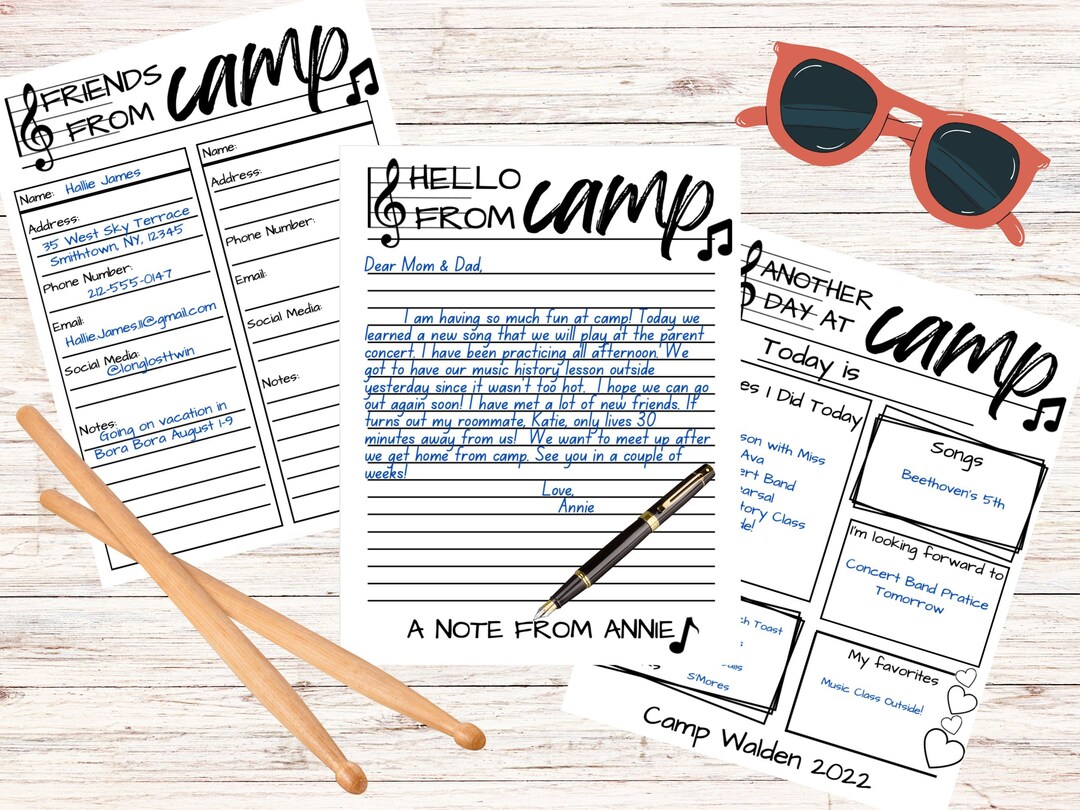 FRIENDS
FROM camp
Name: Hallie James
Address:
35 West Sky Terrace
Smithtown, NY, 12345
Phone Number:
212-555-0147
Email:
Hallie.James.11@gmail.com
Social Media:
@longlosttwin
Notes:
Going on vacation in
Bora Bora August 1-9
Name:
Address:
Phone Number:
Email:
Social Media:
Notes:
HELLO
FROM camp
Dear Mom & Dad,
I am having so much fun at camp! Today we
learned a new song that we will play at the parent
concert. I have been practicing all afternoon. We
got to have our music history lesson outside
yesterday since it wasn't too hot. I hope we can go
out again soon! I have met a lot of new friends. It
turns out my roommate, Katie, only lives 30
minutes away from us! We want to meet up after
we get home from camp. See you in a couple of
weeks!
Love,
Annie
A NOTE FROM ANNIE
ANOTHER
DAY AT camp
Today is
es I Did Today
son with Miss
Ava
ert Band
earsal
tory Class
de!
Songs
Beethoven's 5th
I'm looking forward to
Concert Band Pratice
Tomorrow
ch Toast
S'Mores
My favorites
Music Class Outside!
Camp Walden 2022